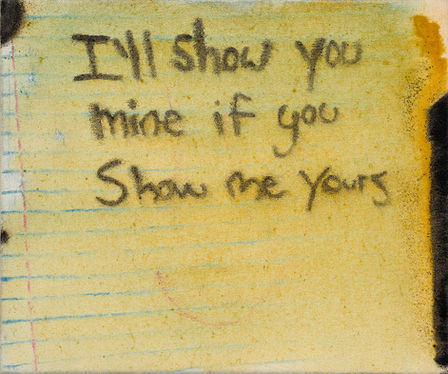 I'll show you
mine if you
Show me yours